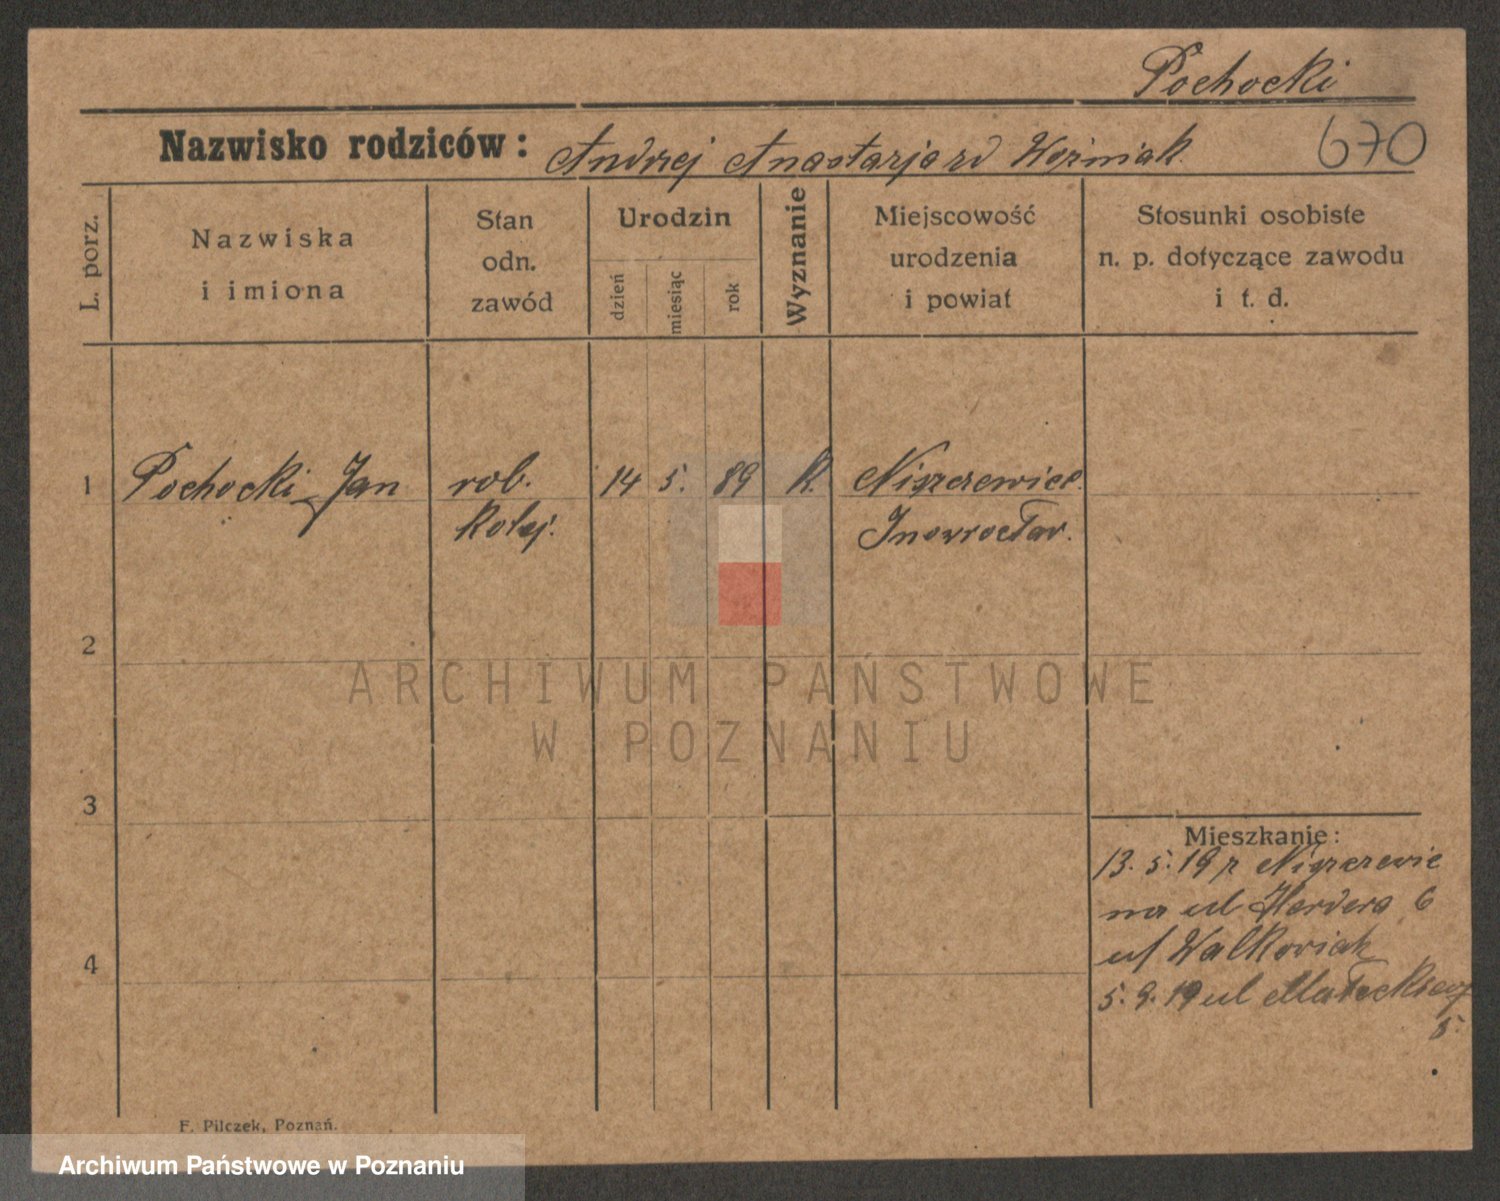 Pochocki
Nazwisko rodziców: Andrzej Anastazja zd Woźniak
670
L. porz.
Nazwiska
i imiona
Stan
odn.
zawód
Urodzin
dzień
miesiąc
rok
Wyznanie
Miejscowość
urodzenia
i powiat
Stosunki osobiste
n. p. dotyczące zawodu
i t. d.
1 Pochocki Jan rob. 14 5. 89 K. Niszczewice
Kolej. Inowrocław.
2
ARCHIWUM PAŃSTWOWE
W POZNANIU
3
Mieszkanie:
13. 5. 19 z
na ul Herdera 6
Walkowiak
4
5. 9. 19 ul Małeckiego
5.
F. Pilczek, Poznań.
Archiwum Państwowe w Poznaniu